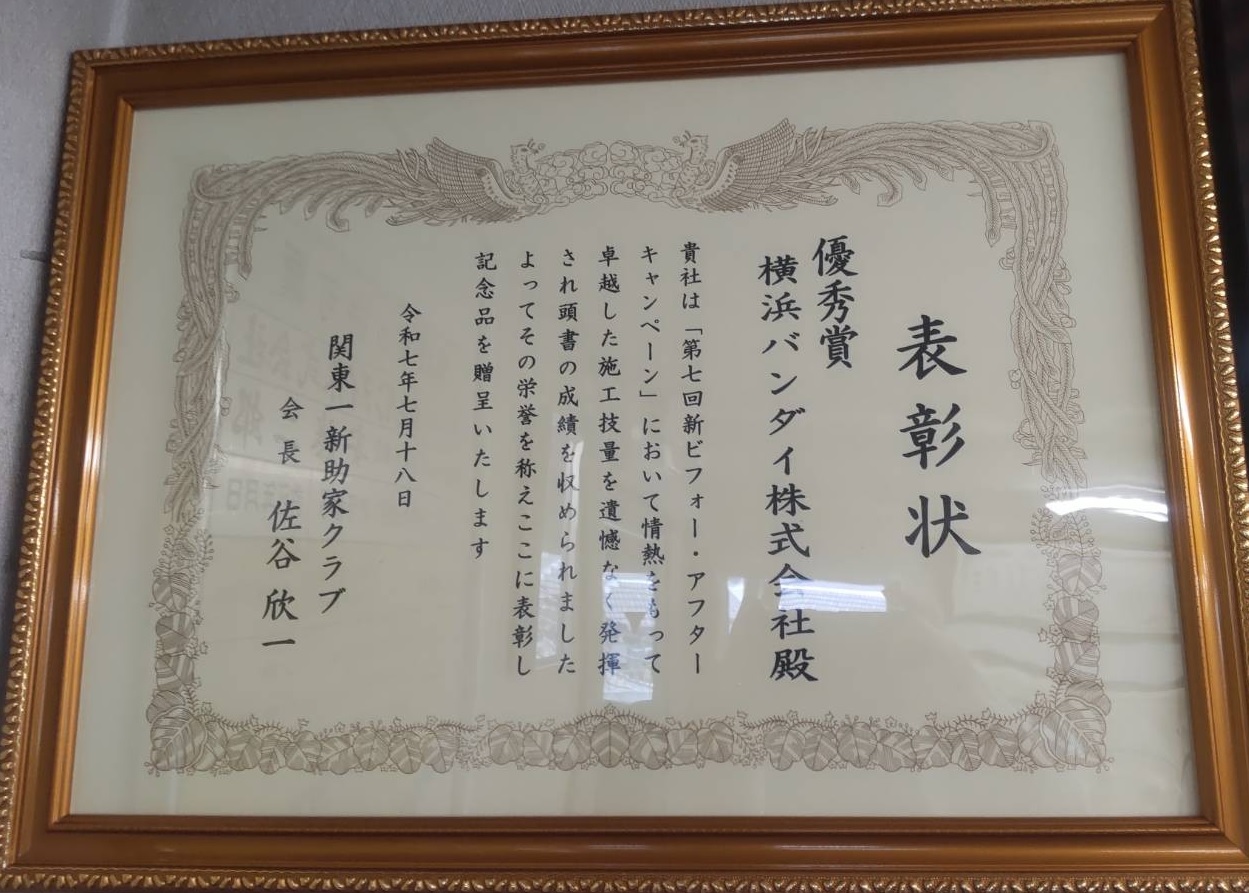 表彰状
優秀賞
横浜バンダイ株式会社殿
貴社は「第七回新ビフォー・アフター
キャンペーン」において情熱をもって
卓越した施工技量を遺憾なく発揮
され頭書の成績を収められました
よってその栄誉を称えここに表彰し
記念品を贈呈いたします
令和七年七月十八日
関東一新助家クラブ
会長 佐谷欣一